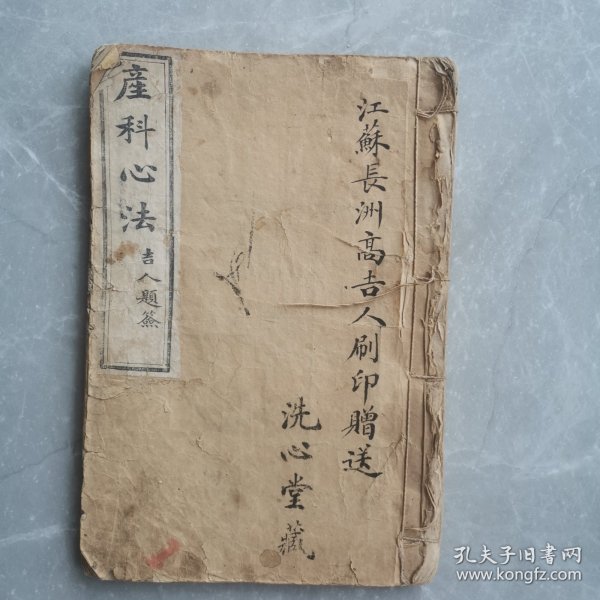 江蘇長洲高吉人刷印贈送
洗心堂藏
產科心法
吉人題簽
孔夫子旧书网
www.kongfz.com